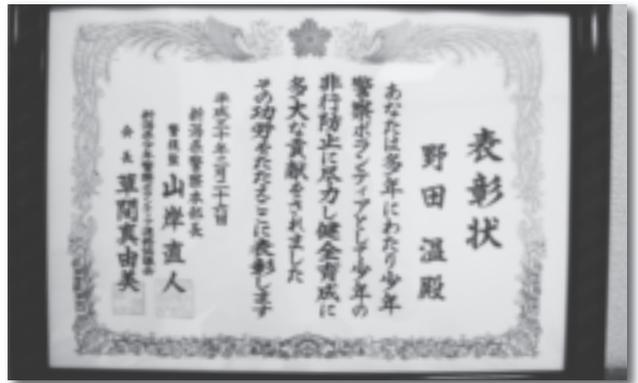 表彰状
野田 温殿
あなたは多年にわたり少年
警察ボランティアとして少年の
非行防止に尽力し健全育成に
多大な貢献をされました
その功労をたたえここに表彰します
平成二十年二月二十六日
新潟県警察本部長
警視監 山岸直人
新潟県少年警察ボランティア連絡協議会
会長 草間真由美